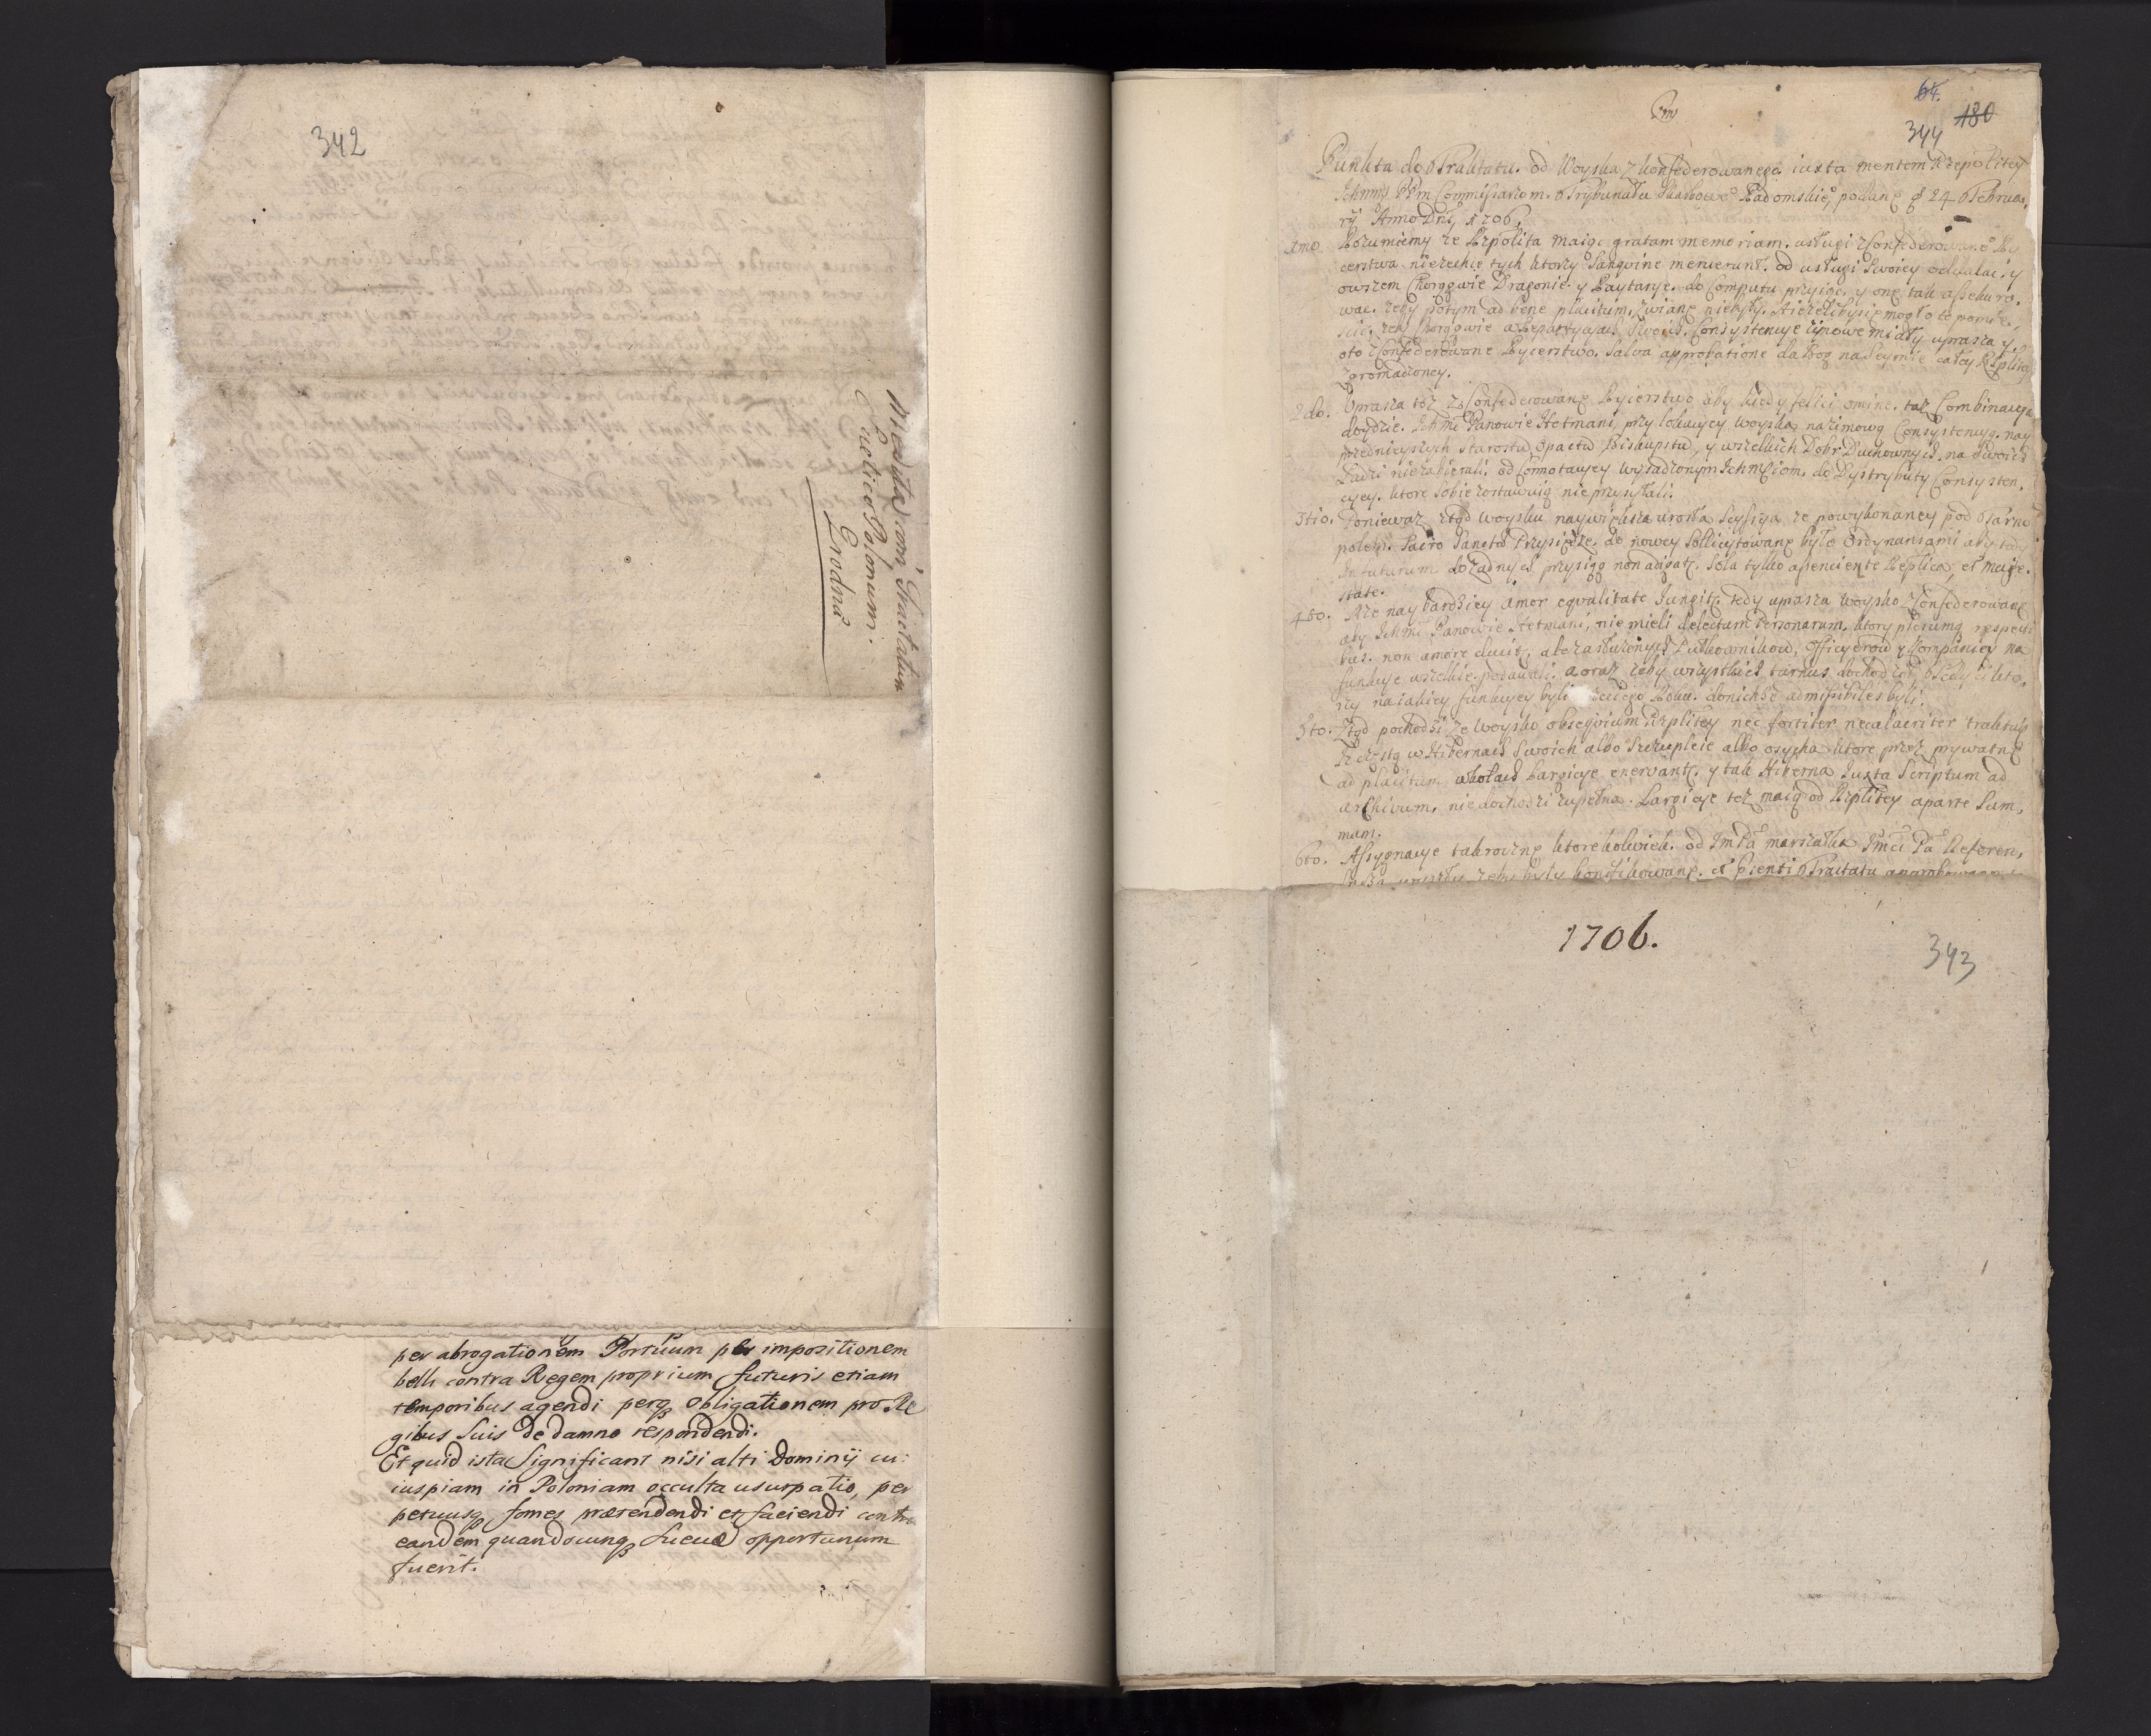 342
Tractatum
Sveticor Polonum.
Grodna
per abrogationem Portuum per impositionem
belli contra Regem proprium futuris etiam
temporibus agendi perq obligationem pro Re
gibus Suis de damno respondendi.
Et quid ista Significant nisi alti Dominij cu:
iuspiam in Poloniam occulta usurpatio, per
petuusq fomes prætendendi et faciendi contra
eandem quandocunq opportunum
fuerit.
64.
180
344
Punkta do Traktatu. od Woyska Zkonfederowanego. iuxta mentem Rzepolitey
Commissarzom. Trybunału Skarbowo Radomskie, podane d 24 Februa,
rÿ Anno Dni 1706.
1mo. Rozumiemy ze Rzpolita maigc gratam memoriam. usługi
cerstwa nie zechce tych ktorzy Sanguine meruerunt. od usługi Swoiey oddalac, y
owszem Chorggwie Dragonie. y Raytarye. do Computu przyigc. y one tak assekuro.
wac. zeby potym ad bene placitum, zwiane niebyły.
Consystencye zimowe miały uprasza y.
oto Zkonfederowane Rycerstwo. Salva approbatione da Bog na Seymie całey Rzplitey
zgromadzoney.
2do. Uprasza toz Zkonfederowane Rycerstwo aby kiedy felici omine. taz Combinacya
doydzie. Ichmc Panowie Hetmani, przy lokacyey woyska na zimowg Consystencyg. nay
przednieyszych Starostw Opactw Biskupstw, y wszelkich Dobr Duchownych. na Swoich
Ludzi niezabierali. od Connotacyey wysadzonym Ichmciom. do Dystrybuty Consysten.
cyey. ktore sobie zostawuig nie przysyłali.
3tio. Poniewaz ztgd woysku naywieksza urosła Scyssya ze powykonaney pod Tarno
polem. Sacro Sancte Przysiedze. do nowey Sollicytowane było Ordynansami aby tedy
in futurum do zadnych przysigg non adigatr. Sola tylko assenciente Rzeplica, et maje.
state.
4to. Aze naybardziey amor eqvalitate Jungitr. tedy uprasza woysko Zkonfederowane
aby Ichmc Panowie Hetmani, nie mieli delectum Personarum. ktory plerumq respecti
bus. non amore ducitr, ale zasłuzonych Pułkownikow, Officyerow y Kompaniey na
funkcye wszelkie. podawali. a oraz zeby wszystkich tarnus dochodził
rzy na iakiey funkcyey byli Roku. do nich ze admissibiles byli.
5to. Ztgd pochodzi ze woysko obseqvium Rzplitey nec fortiter nec alacriter traktuie
ze czestg w Hibernach Swoich albo Szczuplcie albo osycha ktore przez prywatne
ad placitum w kołach Largicye enervantr. y tak Hiberna Iuxta Scriptum ad
archivum. nie dochodzi zupełna. Largicye tez maig od Rzplitey aparte Sum,
mam.
6to. Assygnacye takroczne ktorekolwiek. od Jm Pa marszałka Jmci Pa Referen,
zeby były et Tractatu
1706.
343